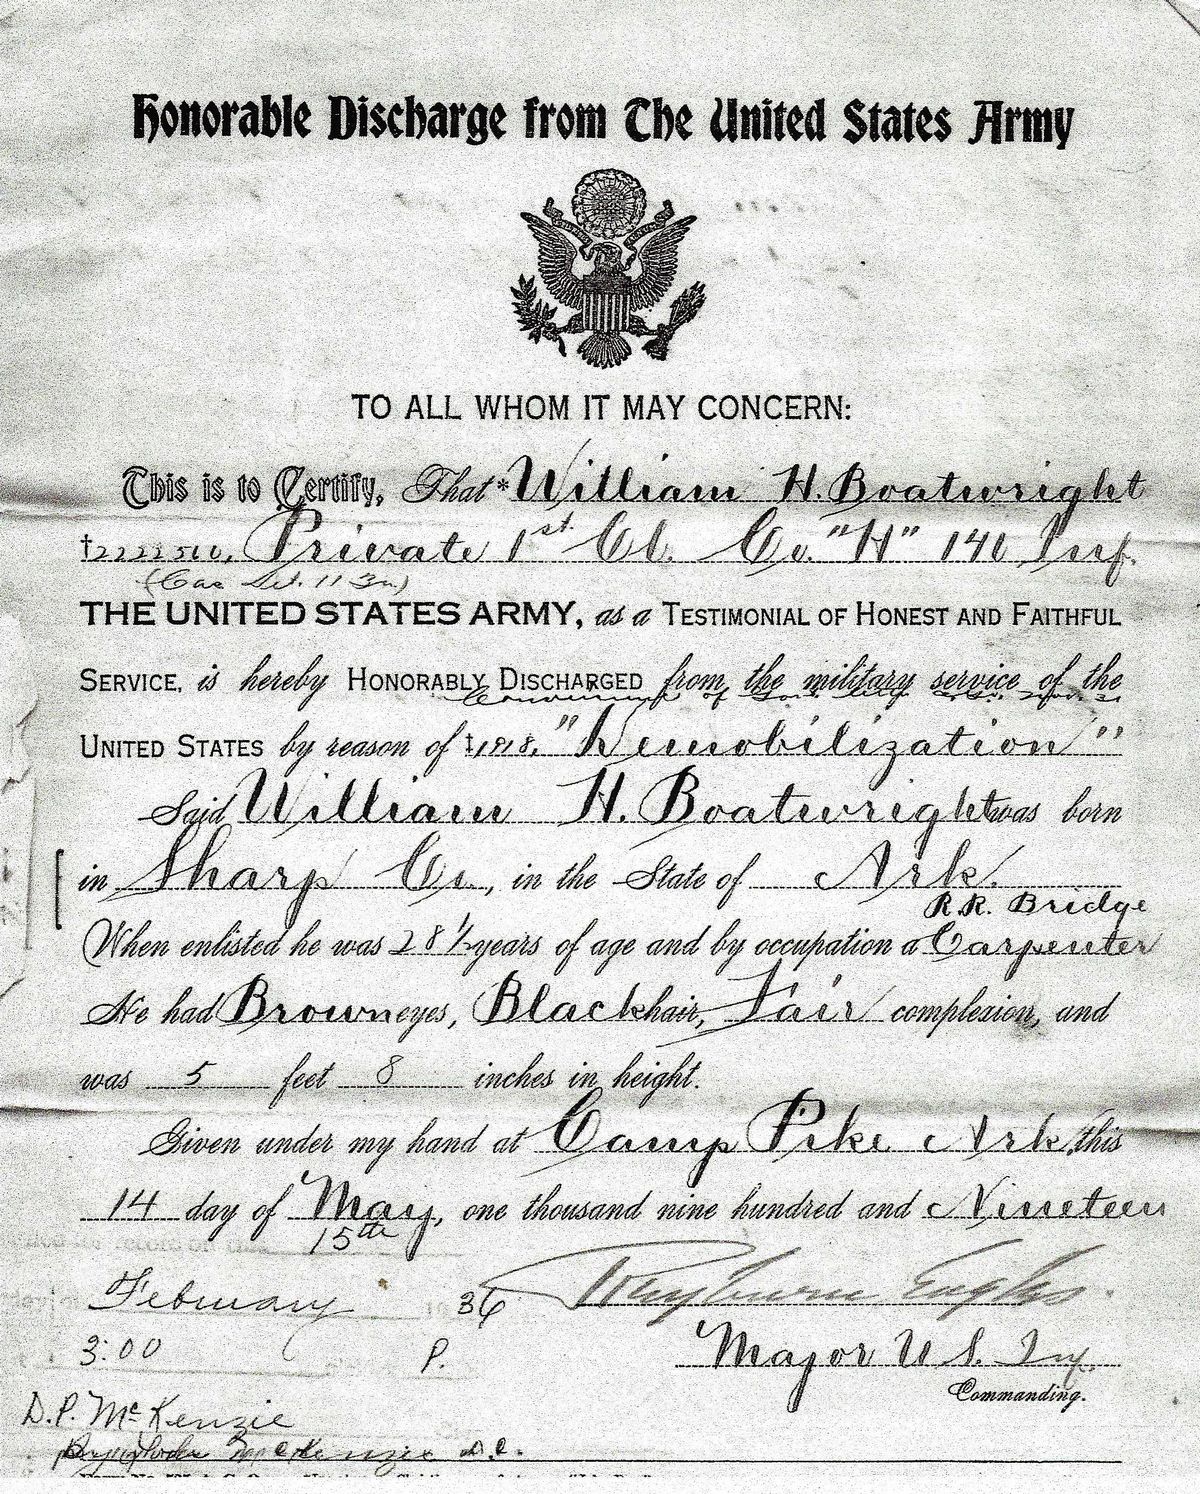 Honorable Discharge from The United States Army
TO ALL WHOM IT MAY CONCERN:
This is to Certify, That * William H. Boatwright
† Private 1st Cl. Co. "H" 140 Inf.
THE UNITED STATES ARMY, as a TESTIMONIAL OF HONEST AND FAITHFUL
SERVICE, is hereby HONORABLY DISCHARGED from the military service of the
UNITED STATES by reason of ‡ 1918, "Demobilization"
Said William H. Boatwright was born
in Sharp Co., in the State of Ark.
R.R. Bridge
When enlisted he was 28 ½ years of age and by occupation a Carpenter
He had Brown eyes, Black hair, Fair complexion, and
was 5 feet 8 inches in height.
Given under my hand at Camp Pike Ark, this
14 day of May, one thousand nine hundred and Nineteen
15th
February 36
3:00 P.
Major U S. Inf.
Commanding.
D.P. McKenzie
McKenzie D.C.